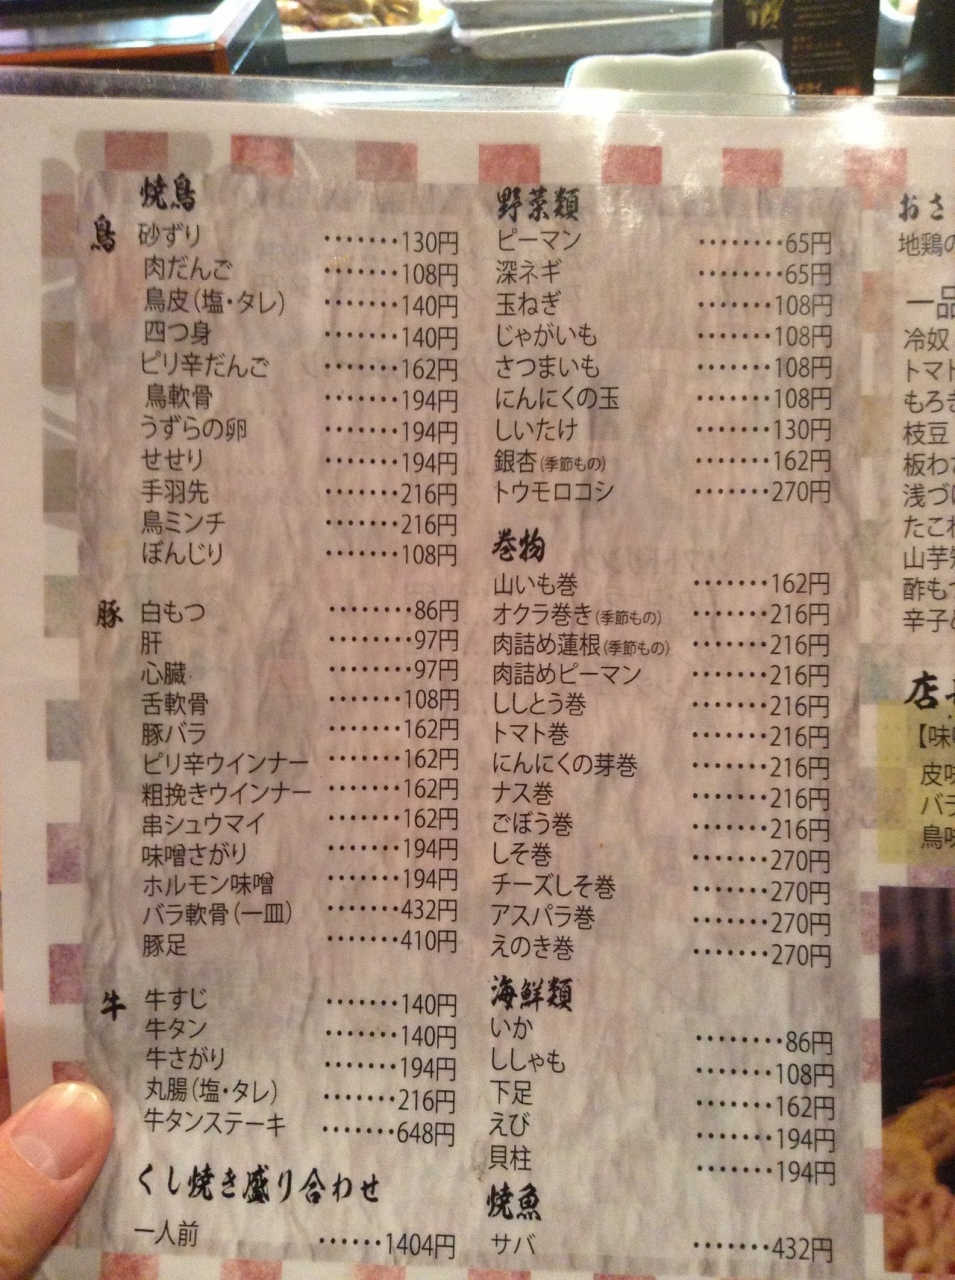 焼鳥
鳥
砂ずり ········130円
肉だんご ·······108円
鳥皮(塩・タレ) ·······140円
四つ身 ·······140円
ピリ辛だんご ·······162円
鳥軟骨 ·······194円
うずらの卵 ·······194円
せせり ·······194円
手羽先 ·······216円
鳥ミンチ ·······216円
ぼんじり ·······108円
豚
白もつ ········86円
肝 ········97円
心臓 ········97円
舌軟骨 ·······108円
豚バラ ·······162円
ピリ辛ウインナー ·······162円
粗挽きウインナー ·······162円
串シュウマイ ·······162円
味噌さがり ·······194円
ホルモン味噌 ·······194円
バラ軟骨(一皿) ·······432円
豚足 ·······410円
牛
牛すじ ·······140円
牛タン ·······140円
牛さがり ·······194円
丸腸(塩・タレ) ·······216円
牛タンステーキ ·······648円
くし焼き盛り合わせ
一人前 ······1404円
野菜類
ピーマン ········65円
深ネギ ········65円
玉ねぎ ·······108円
じゃがいも ·······108円
さつまいも ·······108円
にんにくの玉 ·······108円
しいたけ ·······130円
銀杏(季節もの) ·······162円
トウモロコシ ·······270円
巻物
山いも巻 ·······162円
オクラ巻き(季節もの) ·······216円
肉詰め蓮根(季節もの) ·······216円
肉詰めピーマン ·······216円
ししとう巻 ·······216円
トマト巻 ·······216円
にんにくの芽巻 ·······216円
ナス巻 ·······216円
ごぼう巻 ·······216円
しそ巻 ·······270円
チーズしそ巻 ·······270円
アスパラ巻 ·······270円
えのき巻 ·······270円
海鮮類
いか ········86円
ししゃも ·······108円
下足 ·······162円
えび ·······194円
貝柱 ·······194円
焼魚
サバ ·······432円
おさ
地鶏の
一品
冷奴
トマト
もろき
枝豆
板わさ
浅づけ
たこわ
山芋
酢もつ
辛子
店
【味
皮
バラ
鳥